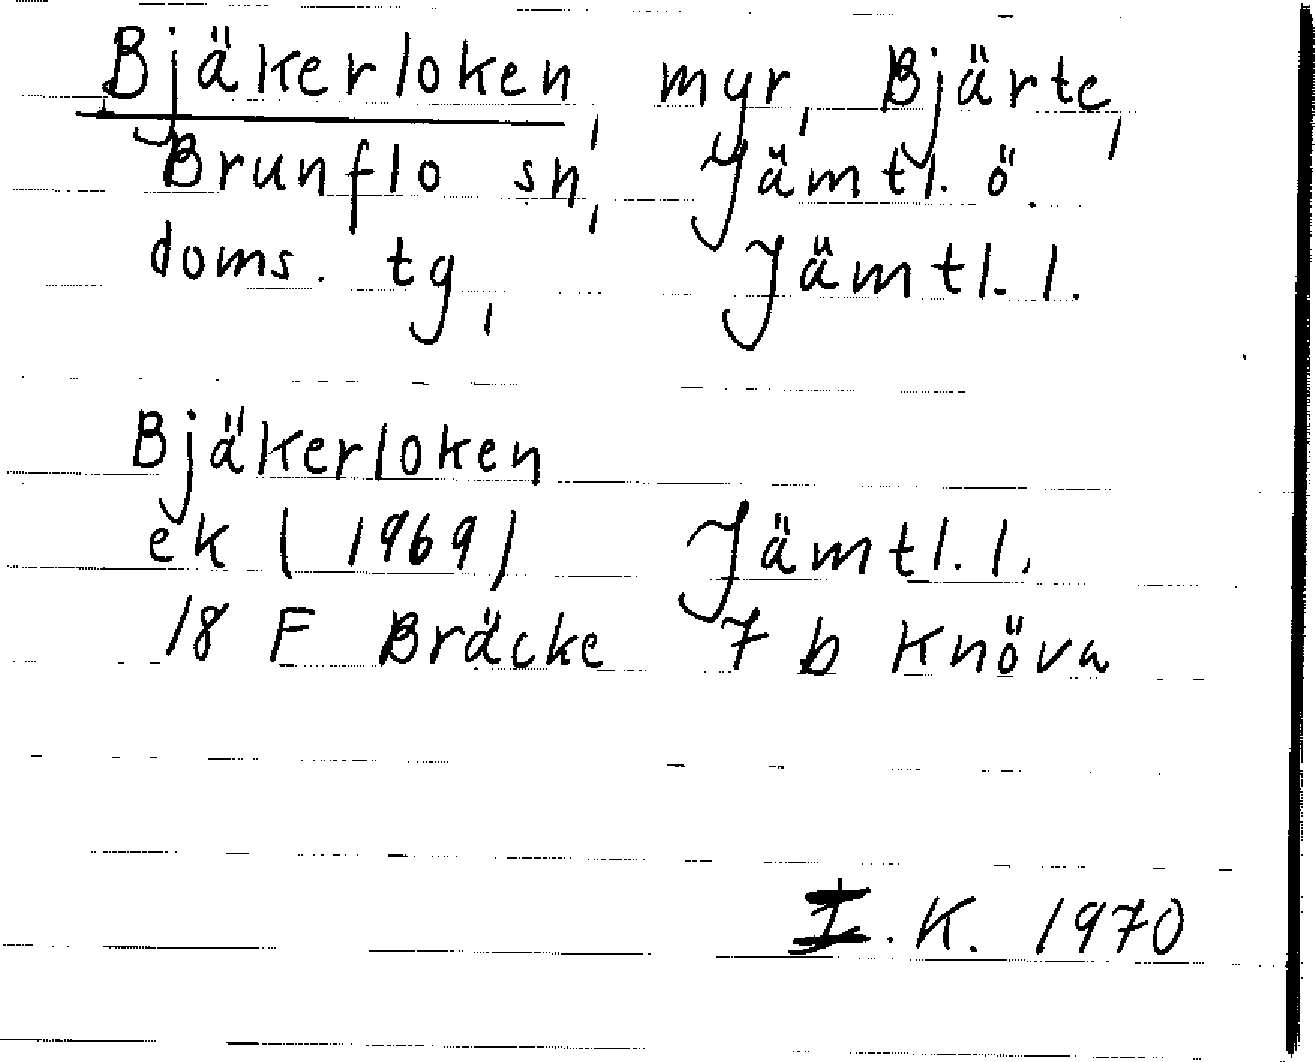 Bjäkerloken, myr, Bjärte,
Brunflo sn, Jämtl. ö.
doms. tg, Jämtl. l.
Bjäkerloken
ek (1969) Jämtl. l.
18 F Bräcke 7 b Knöva
I. K. 1970